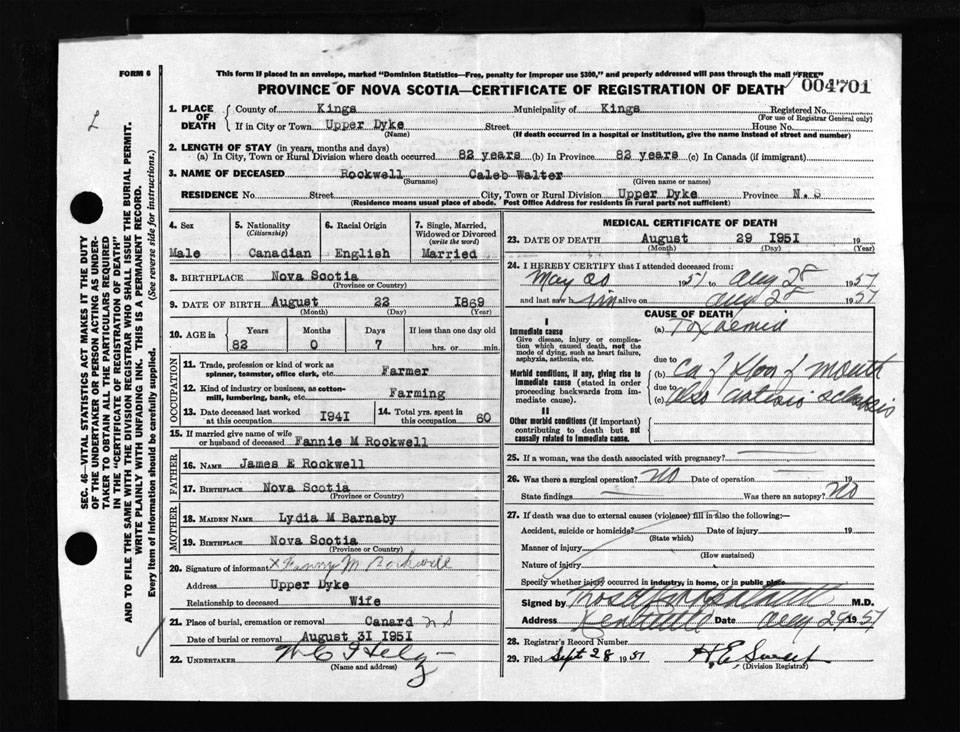 FORM 6
This form if placed in an envelope, marked "Dominion Statistics—Free, penalty for improper use $300," and properly addressed will pass through the mail "FREE"
PROVINCE OF NOVA SCOTIA—CERTIFICATE OF REGISTRATION OF DEATH 004701
1. PLACE OF DEATH County of Kings Municipality of Kings Registered No.
(For use of Registrar General only)
If in City or Town Upper Dyke Street House No.
(Name) (If death occurred in a hospital or institution, give the name instead of street and number)
2. LENGTH OF STAY (in years, months and days)
(a) In City, Town or Rural Division where death occurred 82 years (b) In Province 82 years (c) In Canada (if immigrant)
3. NAME OF DECEASED Rockwell Caleb Walter
(Surname) (Given name or names)
RESIDENCE No. Street City, Town or Rural Division Upper Dyke Province N. S
(Residence means usual place of abode. Post Office Address for residents in rural parts not sufficient)
SEC. 46—VITAL STATISTICS ACT MAKES IT THE DUTY
OF THE UNDERTAKER OR PERSON ACTING AS UNDER-
TAKER TO OBTAIN ALL THE PARTICULARS REQUIRED
IN THE "CERTIFICATE OF REGISTRATION OF DEATH"
AND TO FILE THE SAME WITH THE DIVISION REGISTRAR WHO SHALL ISSUE THE BURIAL PERMIT.
WRITE PLAINLY WITH UNFADING INK. THIS IS A PERMANENT RECORD.
Every item of information should be carefully supplied. (See reverse side for instructions.)
4. Sex
Male
5. Nationality
(Citizenship)
Canadian
6. Racial Origin
English
7. Single, Married,
Widowed or Divorced
(write the word)
Married
8. BIRTHPLACE Nova Scotia
(Province or Country)
9. DATE OF BIRTH August 22 1869
(Month) (Day) (Year)
10. AGE in Years Months Days If less than one day old
82 0 7 hrs. or min.
OCCUPATION
11. Trade, profession or kind of work as
spinner, teamster, office clerk, etc. Farmer
12. Kind of industry or business, as cotton-
mill, lumbering, bank, etc. Farming
13. Date deceased last worked
at this occupation 1941
14. Total yrs. spent in
this occupation 60
15. If married give name of wife
or husband of deceased Fannie M Rockwell
FATHER
16. NAME James E Rockwell
17. BIRTHPLACE Nova Scotia
(Province or Country)
MOTHER
18. MAIDEN NAME Lydia M Barnaby
19. BIRTHPLACE Nova Scotia
(Province or Country)
20. Signature of informant x Fanny M Rockwell
Address Upper Dyke
Relationship to deceased Wife
21. Place of burial, cremation or removal Canard N S
Date of burial or removal August 31 1951
22. UNDERTAKER
(Name and address)
MEDICAL CERTIFICATE OF DEATH
23. DATE OF DEATH August 29 1951 19
(Month) (Day) (Year)
24. I HEREBY CERTIFY that I attended deceased from:
May 20 1951 to Aug 28 1951
and last saw him alive on Aug 28 1951
CAUSE OF DEATH
I
Immediate cause
Give disease, injury or complica-
tion which caused death, not the
mode of dying, such as heart failure,
asphyxia, asthenia, etc.
(a) Toxaemia
due to
Morbid conditions, if any, giving rise to
immediate cause (stated in order
proceeding backwards from im-
mediate cause).
(b) Ca of floor of mouth
due to
(c) also arterio sclerosis
II
Other morbid conditions (if important)
contributing to death but not
causally related to immediate cause.
25. If a woman, was the death associated with pregnancy?
26. Was there a surgical operation? No Date of operation 19
State findings Was there an autopsy? No
27. If death was due to external causes (violence) fill in also the following:—
Accident, suicide or homicide? Date of injury 19
(State which)
Manner of injury
(How sustained)
Nature of injury
Specify whether injury occurred in industry, in home, or in public place
Signed by M.D.
Address Kentville Date Aug 29 1951
28. Registrar's Record Number
29. Filed Sept 28 1951
(Division Registrar)